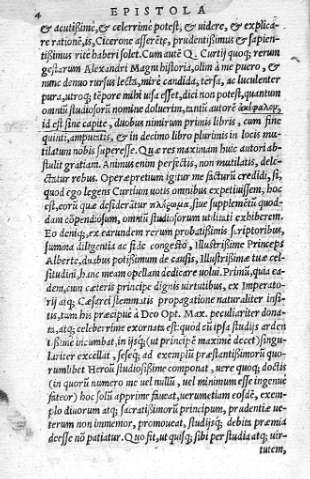 4 EPISTOLA
& acutissimè, & celerrimè potest, & uidere, & explica-
re rationē, is, Cicerone asserēte, prudentissimus & sapien-
tissimus rite haberi solet. Cum autē Q. Curtij quoq; rerum
gestarum Alexandri Magni historia, olim à me puero, &
nunc denuo rursus lecta, mirè candida, tersa, ac luculenter
pura, utroq; tēpore mihi uisa esset, dici non potest, quantum
omniū studiosorū nomine doluerim, tantū autorē ἀκέφαλον,
id est sine capite, duobus nimirum primis libris, cum fine
quinti, ampustis, & in decimo libro plurimis in locis mu-
tilatum nobis superesse. Quæ res maximam huic autori abs-
tulit gratiam. Animus enim perfectis, non mutilatis, dele-
ctatur rebus. Operæpretium igitur me facturū credidi, si,
quod ego legens Curtium uotis omnibus expetiuissem, hoc
est, eorū quæ desiderātur πλήρωμα, siue supplemētū quod-
dam cōpendiosum, omniū studiosorum utilitati exhiberem.
Eo demq;, ex earundem rerum probatissimis scriptoribus,
summa diligentia ac fide congestō, Illustrissime Princeps
Alberte, duabus potissimum de causis, Illustrissimæ tuæ cel-
situdini, hanc meam opellam dedicare uolui. Primū, quia ea-
dem, cum cæteris principe dignis uirtutibus, ex Imperato-
rij atq; Cæsarei stemmatis propagatione naturaliter insi-
tis, tum his præcipuè à Deo Opt. Max. peculiariter dona-
ta, atq; celeberrime exornata est: quod cū ipsa studijs arden-
tissime incumbat, in ijsq; (ut principē maximè decet) singu-
lariter excellat, seseq; ad exemplū præstantissimorū quo-
rumlibet Heroū studiosissime componat, uere quoq; doctis
(in quorū numero me uel nullū, uel minimum esse ingenue
fateor) hoc solū apprime fiueat, uerumetiam eosdē, exem-
plo diuorum atq; sacratissimorū principum, prudentiæ ue-
terum non immemor, promoueat, studijsq; debita præmia
deesse nō patiatur. Quo fit, ut quisq; sibi per studia atq; uir-
tutem,